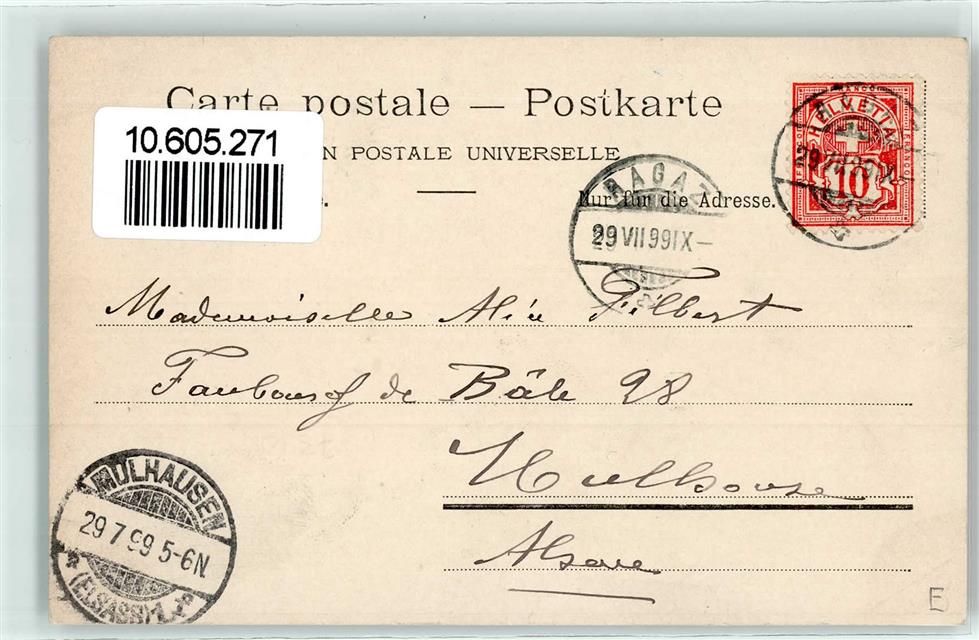 Carte postale — Postkarte
10.605.271
N POSTALE UNIVERSELLE
Nur für die Adresse.
HELVETIA
FRANCO
10
RAGAZ
29 VII 99 IX—
Mademoiselle Filbert
Faubourg de Bâle 28
Mulhouse
Alsace
MÜLHAUSEN
29 7 99 5-6N.
(ELSASS) 1
E